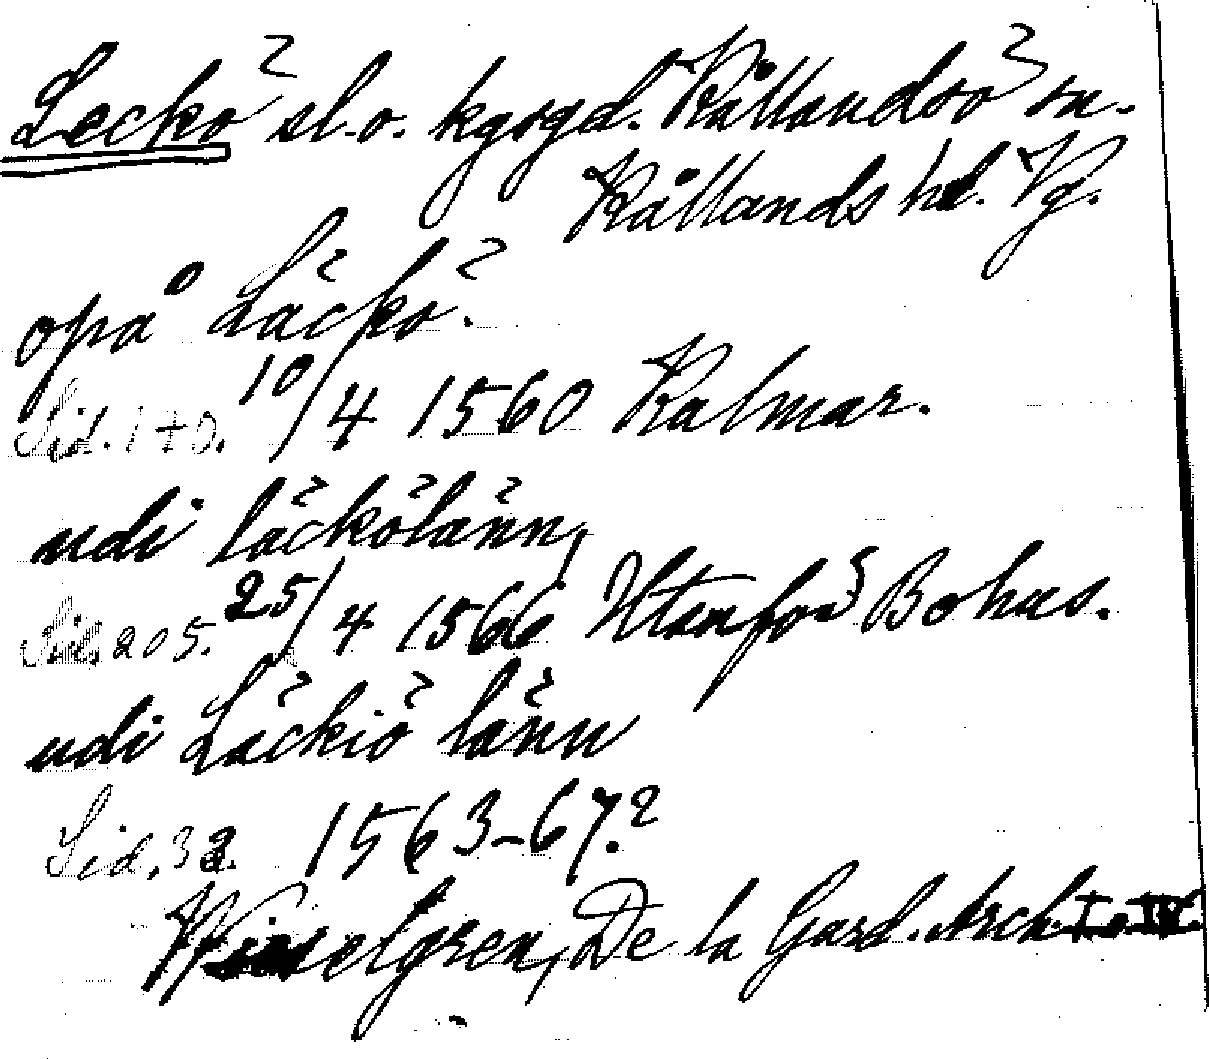 Leckö sl. o. kgsgd. Kållandsö sn.
Kållands hd. Vg.
opå Läckö.
Sid. 170. 10/4 1560 Kalmar.
udi läckölänn,
Sid. 205. 25/4 1566 Utanför Bohus.
udi Läckiö länn
Sid. 32. 1563-67?
Wieselgren, De la Gard. Arch. I o. IV.